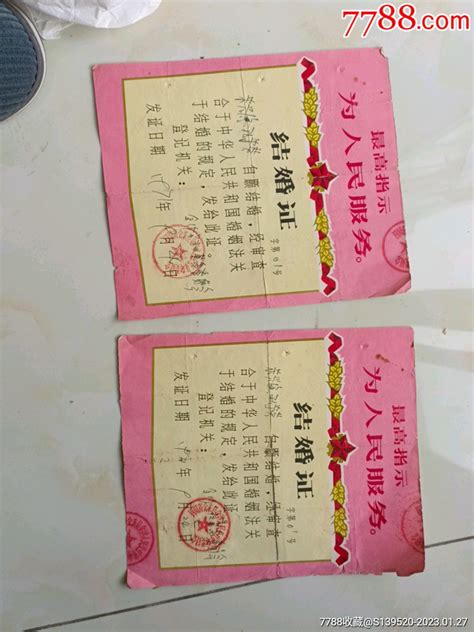 7788.com
最高指示
为人民服务。
结婚证
字第61号
自愿结婚，经审查
合于中华人民共和国婚姻法关
于结婚的规定，发给此证。
登记机关：
发证日期
年
月
日
最高指示
为人民服务。
结婚证
字第61号
自愿结婚，经审查
合于中华人民共和国婚姻法关
于结婚的规定，发给此证
登记机关：
发证日期
年
月
日
7788收藏@S139520-2023.01.27